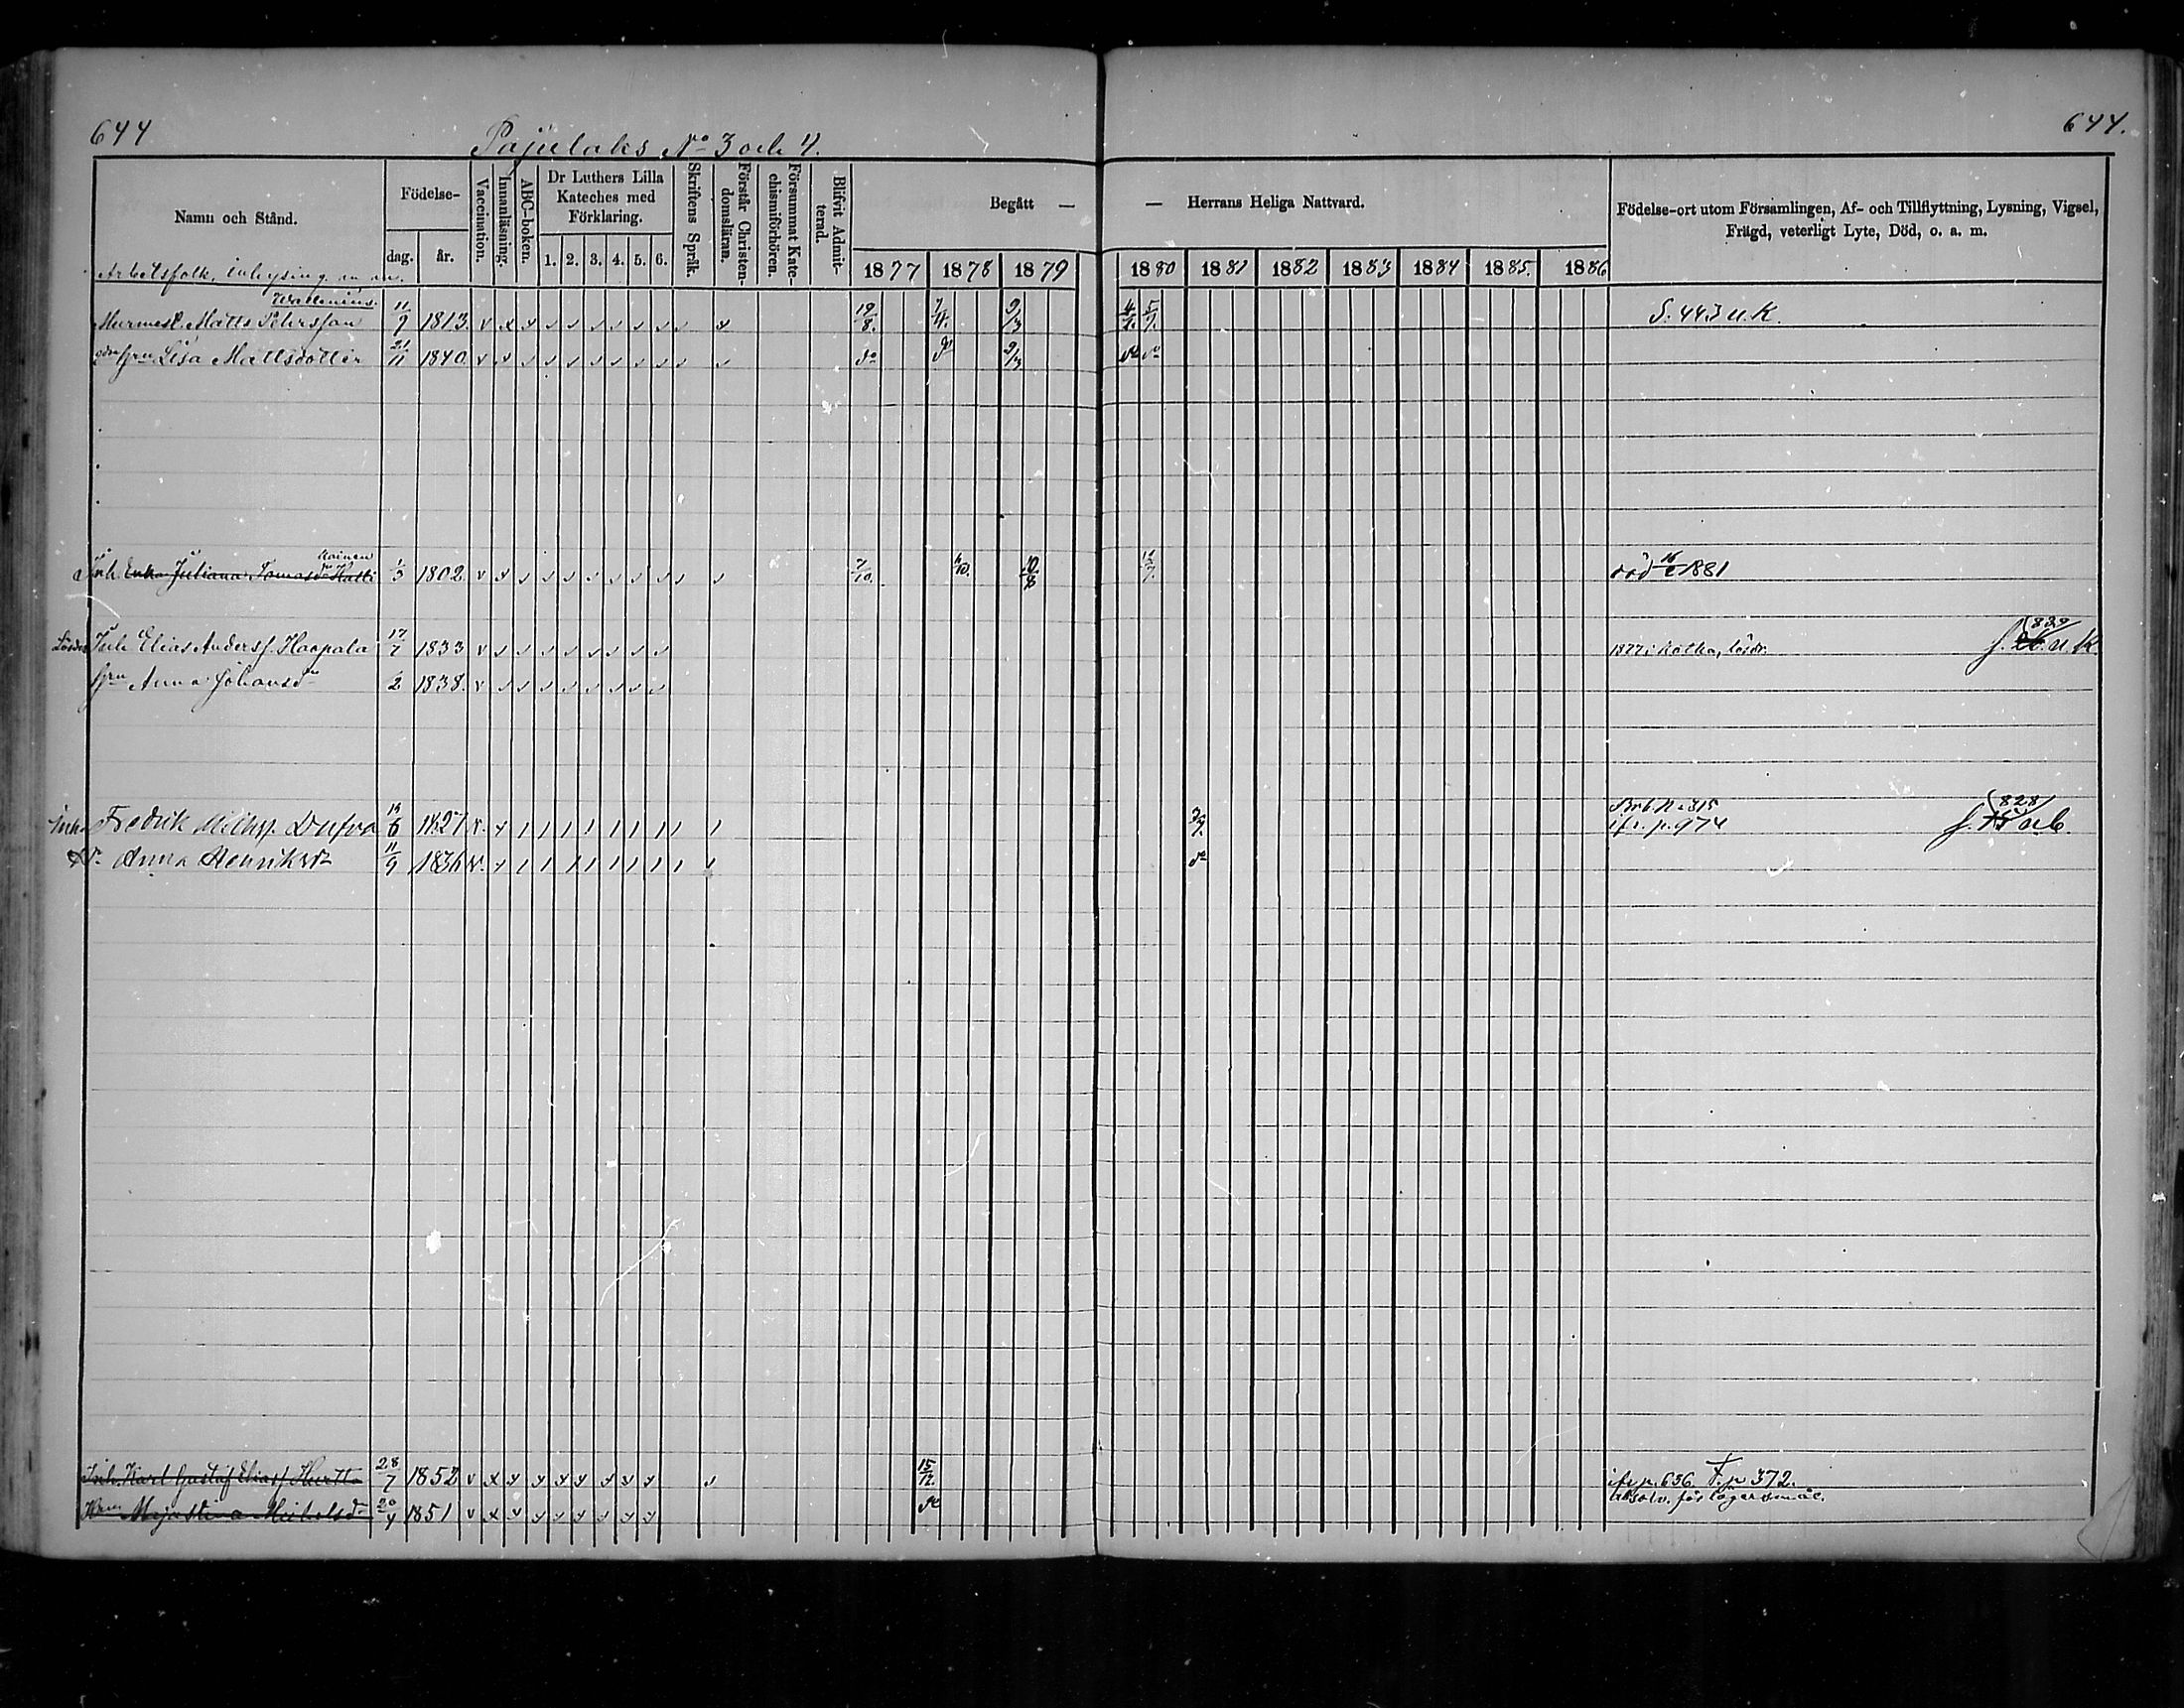 644
644.
Pajulaks No 3 och 4.
Namn och Stånd.
Födelse-
dag.
år.
Vaccination.
Innanläsning.
ABC-boken.
Dr Luthers Lilla
Kateches med
Förklaring.
1. 2. 3. 4. 5. 6.
Skriftens Språk.
Förstår Christen-
domsläran.
Försummat Kate-
chismiförhören.
Blifvit Admit-
terad.
Begått — — Herrans Heliga Nattvard.
1877 1878 1879 1880 1881 1882 1883 1884 1885. 1886
Födelse-ort utom Församlingen, Af- och Tillflyttning, Lysning, Vigsel,
Frägd, veterligt Lyte, Död, o. a. m.
Arbetsfolk, inhysing. m. m.
Wallenius.
Murmest. Matts Petersson 11/9 1813. v x x 19/8. 7/4. 2/3 5/9. S. 443 u. K.
hru Lisa Mattsdotter 21/11 1840. v x do do 2/3 do do
Inh. Enka Juliana Tomasdr Hatti 1/3 1802 v x 7/10. 6/10. 10/8 död 1881
Inh Elias Anderss. Haapala 17/7 1833 v 1877 i Kotka, lösdr. 839 u K
hru Anna Johansdr 1838. v
Inh. Fredrik Mich:s. Dufva 6 1827 v. Brb. N:o 315
ifr. p. 974 828
Anna Henriksdr 11/9 1836 v. do
Inh. Karl Gustaf Eliass. Hurtta 28/7 1852 v x x 15/12. ifr p. 636. F. p 372.
Hru Maja Stina Michelsdr 20/4 1851 v x x do absolv. för lägersmål.